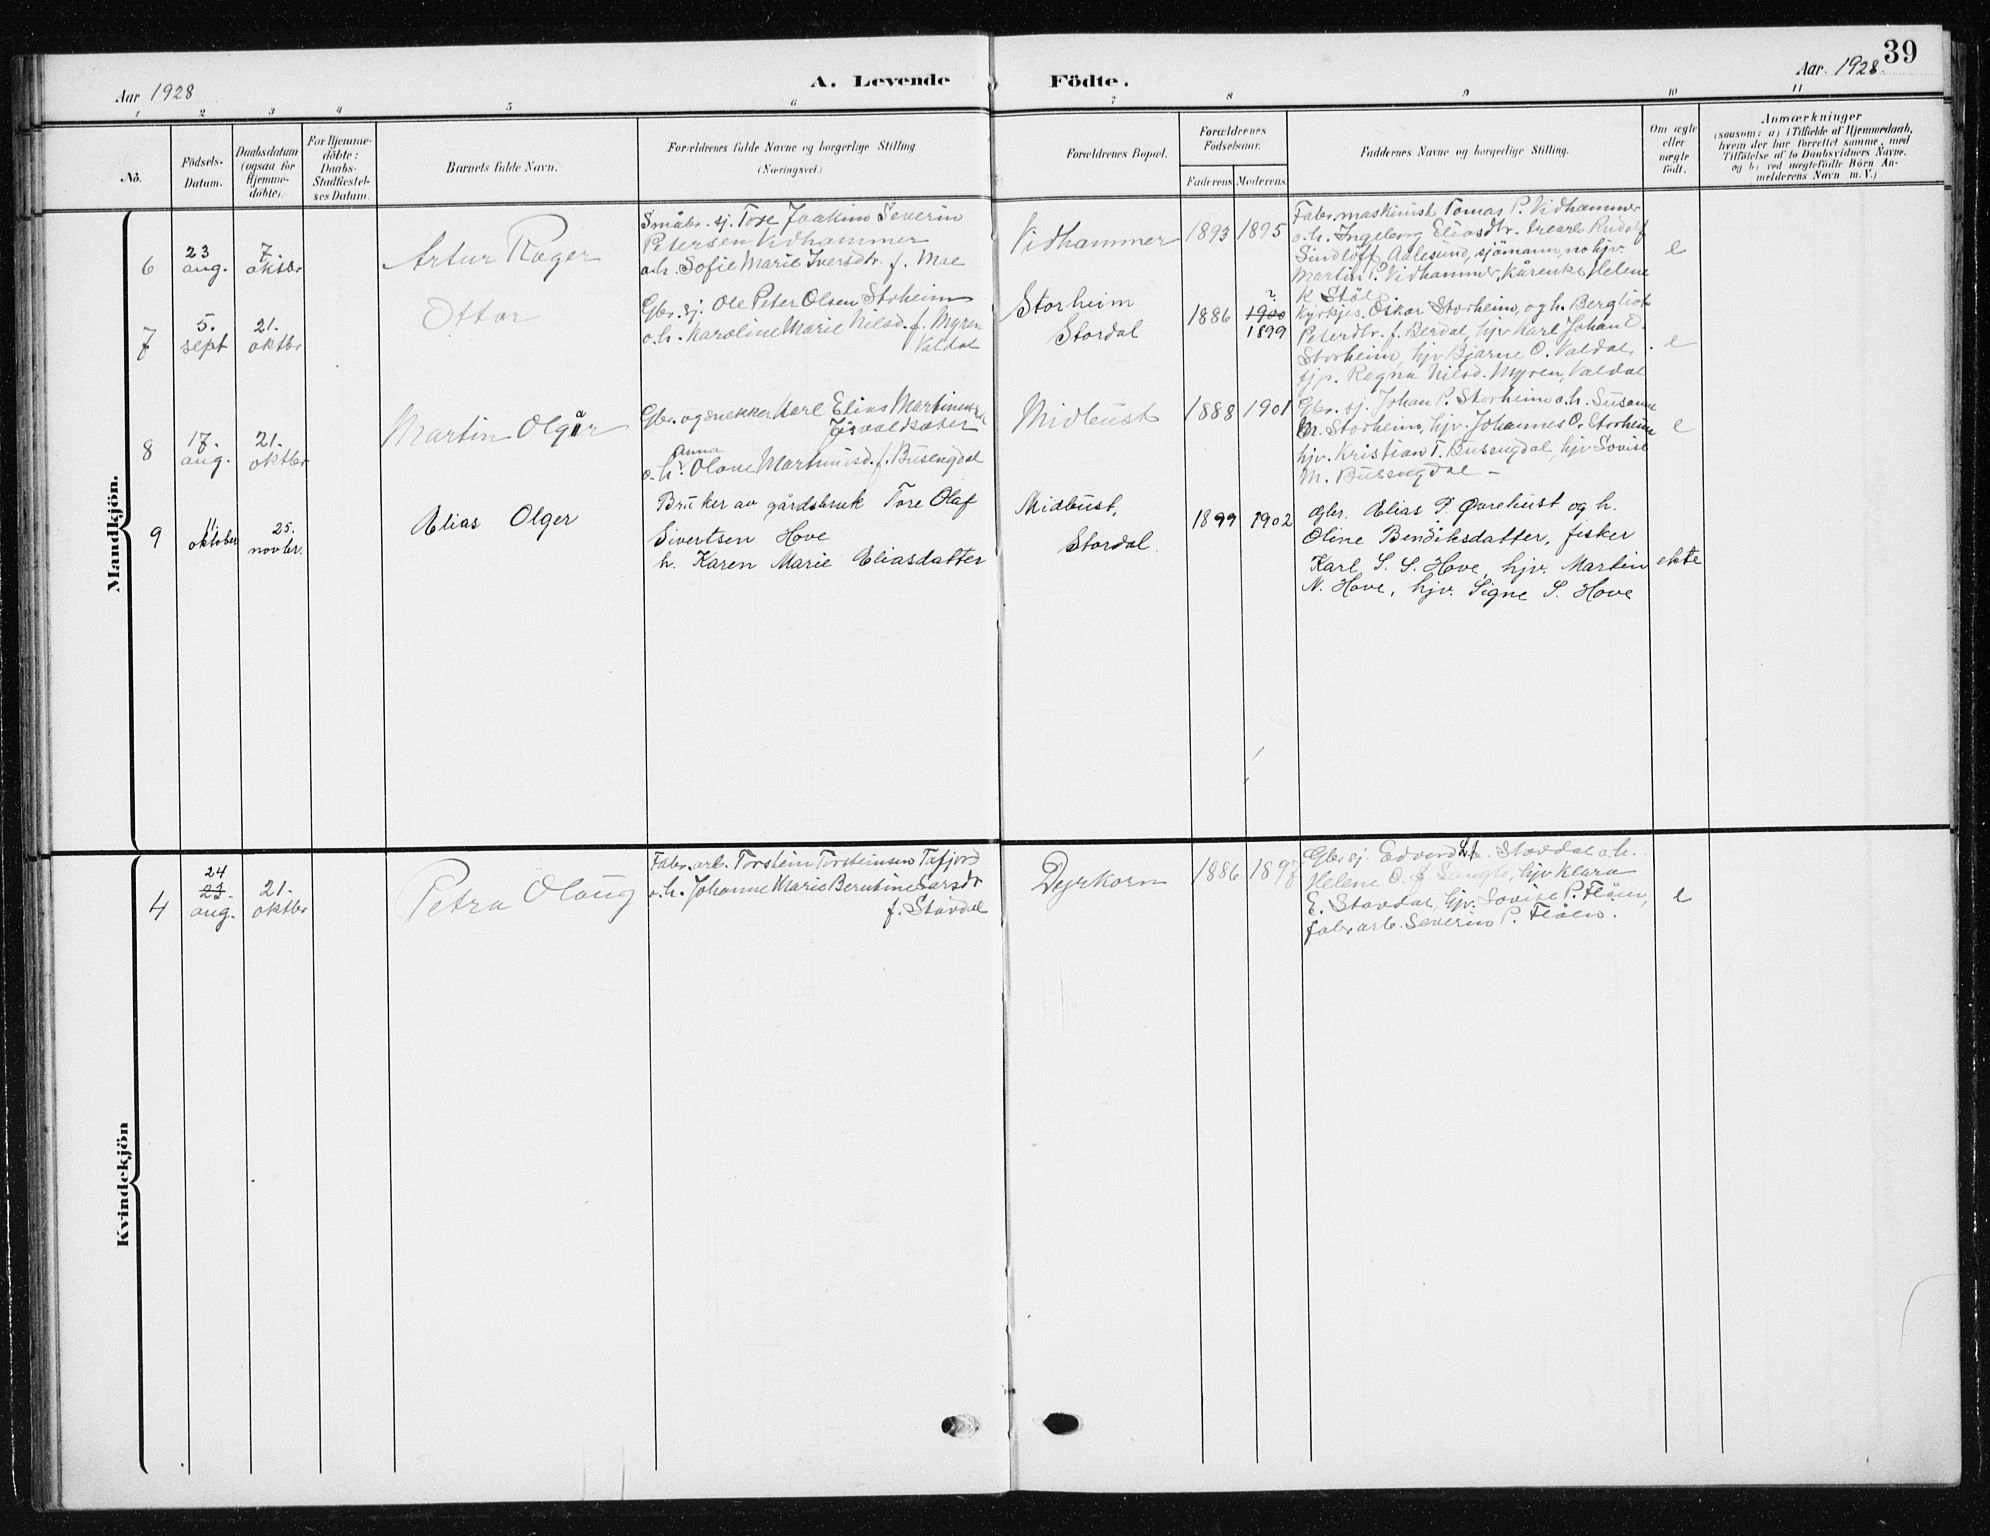 39
Aar 1928
A. Levende
Födte.
Aar 1928.
1 2 3 4 5 6 7 8 9 10 11
No.
Födsels-
Datum.
Daabsdatum
(ogsaa for
Hjemme-
döbte).
For Hjemme-
döbte:
Daabs-
Stadfæstel-
ses Datum.
Barnets fulde Navn.
Forældrenes fulde Navne og borgerlige Stilling
(Næringsvei.)
Forældrenes Bopæl.
Forældrenes
Födselsaar.
Faderens Moderens
Faddernes Navne og borgerlige Stilling.
Om ægte
eller
uægte
født.
Anmærkninger
(saasom: a) i Tilfælde af Hjemmedaab,
hvem der har forrettet samme, med
Tilføielse af to Daabsvidners Navne.
og b) ved uægtefødte Børn An-
melderens Navn m. V.)
Mandkjön.
6
23
aug.
7.
oktbr
Artur Roger
Småbr. sj. Tore Joakim Severin
Petersen Vidhammer
o.h. Sofie Marie Iversdtr. f. Moe
Vidhammer
1893 1895
Fabr. maskinist Tomas P. Vidhammer
o.h. Ingeborg Eliasdtr. trearb. Rudolf
Lindlöff Aalesund, sjömann, no hjv.
Martin P. Vidhammer, Helene
K Stöle
e
7
5.
sept
21.
oktbr
Ottar
Gbr. sj. Ole Peter Olsen Storheim
o.h. Karoline Marie Nilsd. f. Myren
Valdal
Storheim
Stordal
1886
?
1900
1899
Kyrkjes. Oskar Storheim, og h. Bergliot
Petersdtr. f. Berdal, hjv Karl Johan O.
Storheim, hjv Bjarne O. Valdal,
tjp. Ragna Nilsd. Myren, Valdal
e
8
17.
aug.
21.
oktbr
Martin Olgår
Gbr. og snekker Karl Elias Martinussen
o.h. Anna Olave Martinusd. f. Busengdal
Midbust
1888 1901
Gbr. sj. Johan P. Storheim o.h. Susanne
M. Storheim, hjv. Johannes O. Storheim
hjv. Kristian T. Busengdal, hjv Lovise
M. Busengdal –
e
9
11
oktober
25.
novbr.
Elias Olger
Bruker av gårdsbruk Tore Olaf
Sivertsen Hove
h. Karen Marie Eliasdatter
Midbust,
Stordal.
1899 1902
Gbr. Elias P. Øvrebust og h.
Oline Bendiksdatter, fisker
Karl S. S. Hove, hjv. Martin
N. Hove, hjv. Signe S. Hove
ekte
Kvindekjön
4
24
23.
aug.
21.
oktbr
Petra Olaug
Fabr. arb. Torstein Torsteinsen Tafjord
o.h. Johanne Marie Berntine Larsdt
f. Stavdal
Dyrkorn
1886 1897
Gbr sj. Edvard L. Stavdal o.h.
Helene O. f. Langlo, hjv Klara
E. Stavdal, hjv. Lovise P. Flöen,
fabr arb. Severin P. Flöen.
e